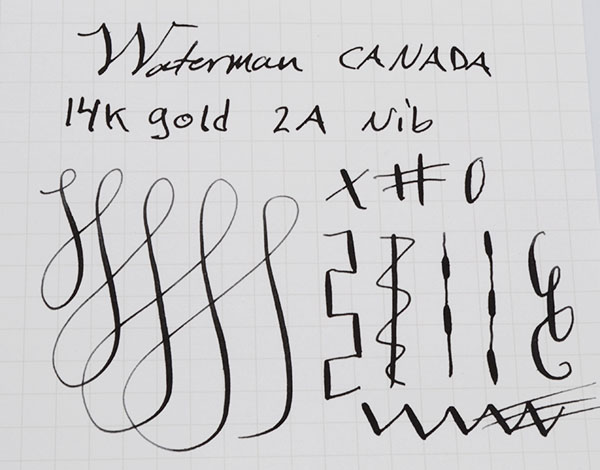 Waterman CANADA
14K gold 2A Nib
X # 0